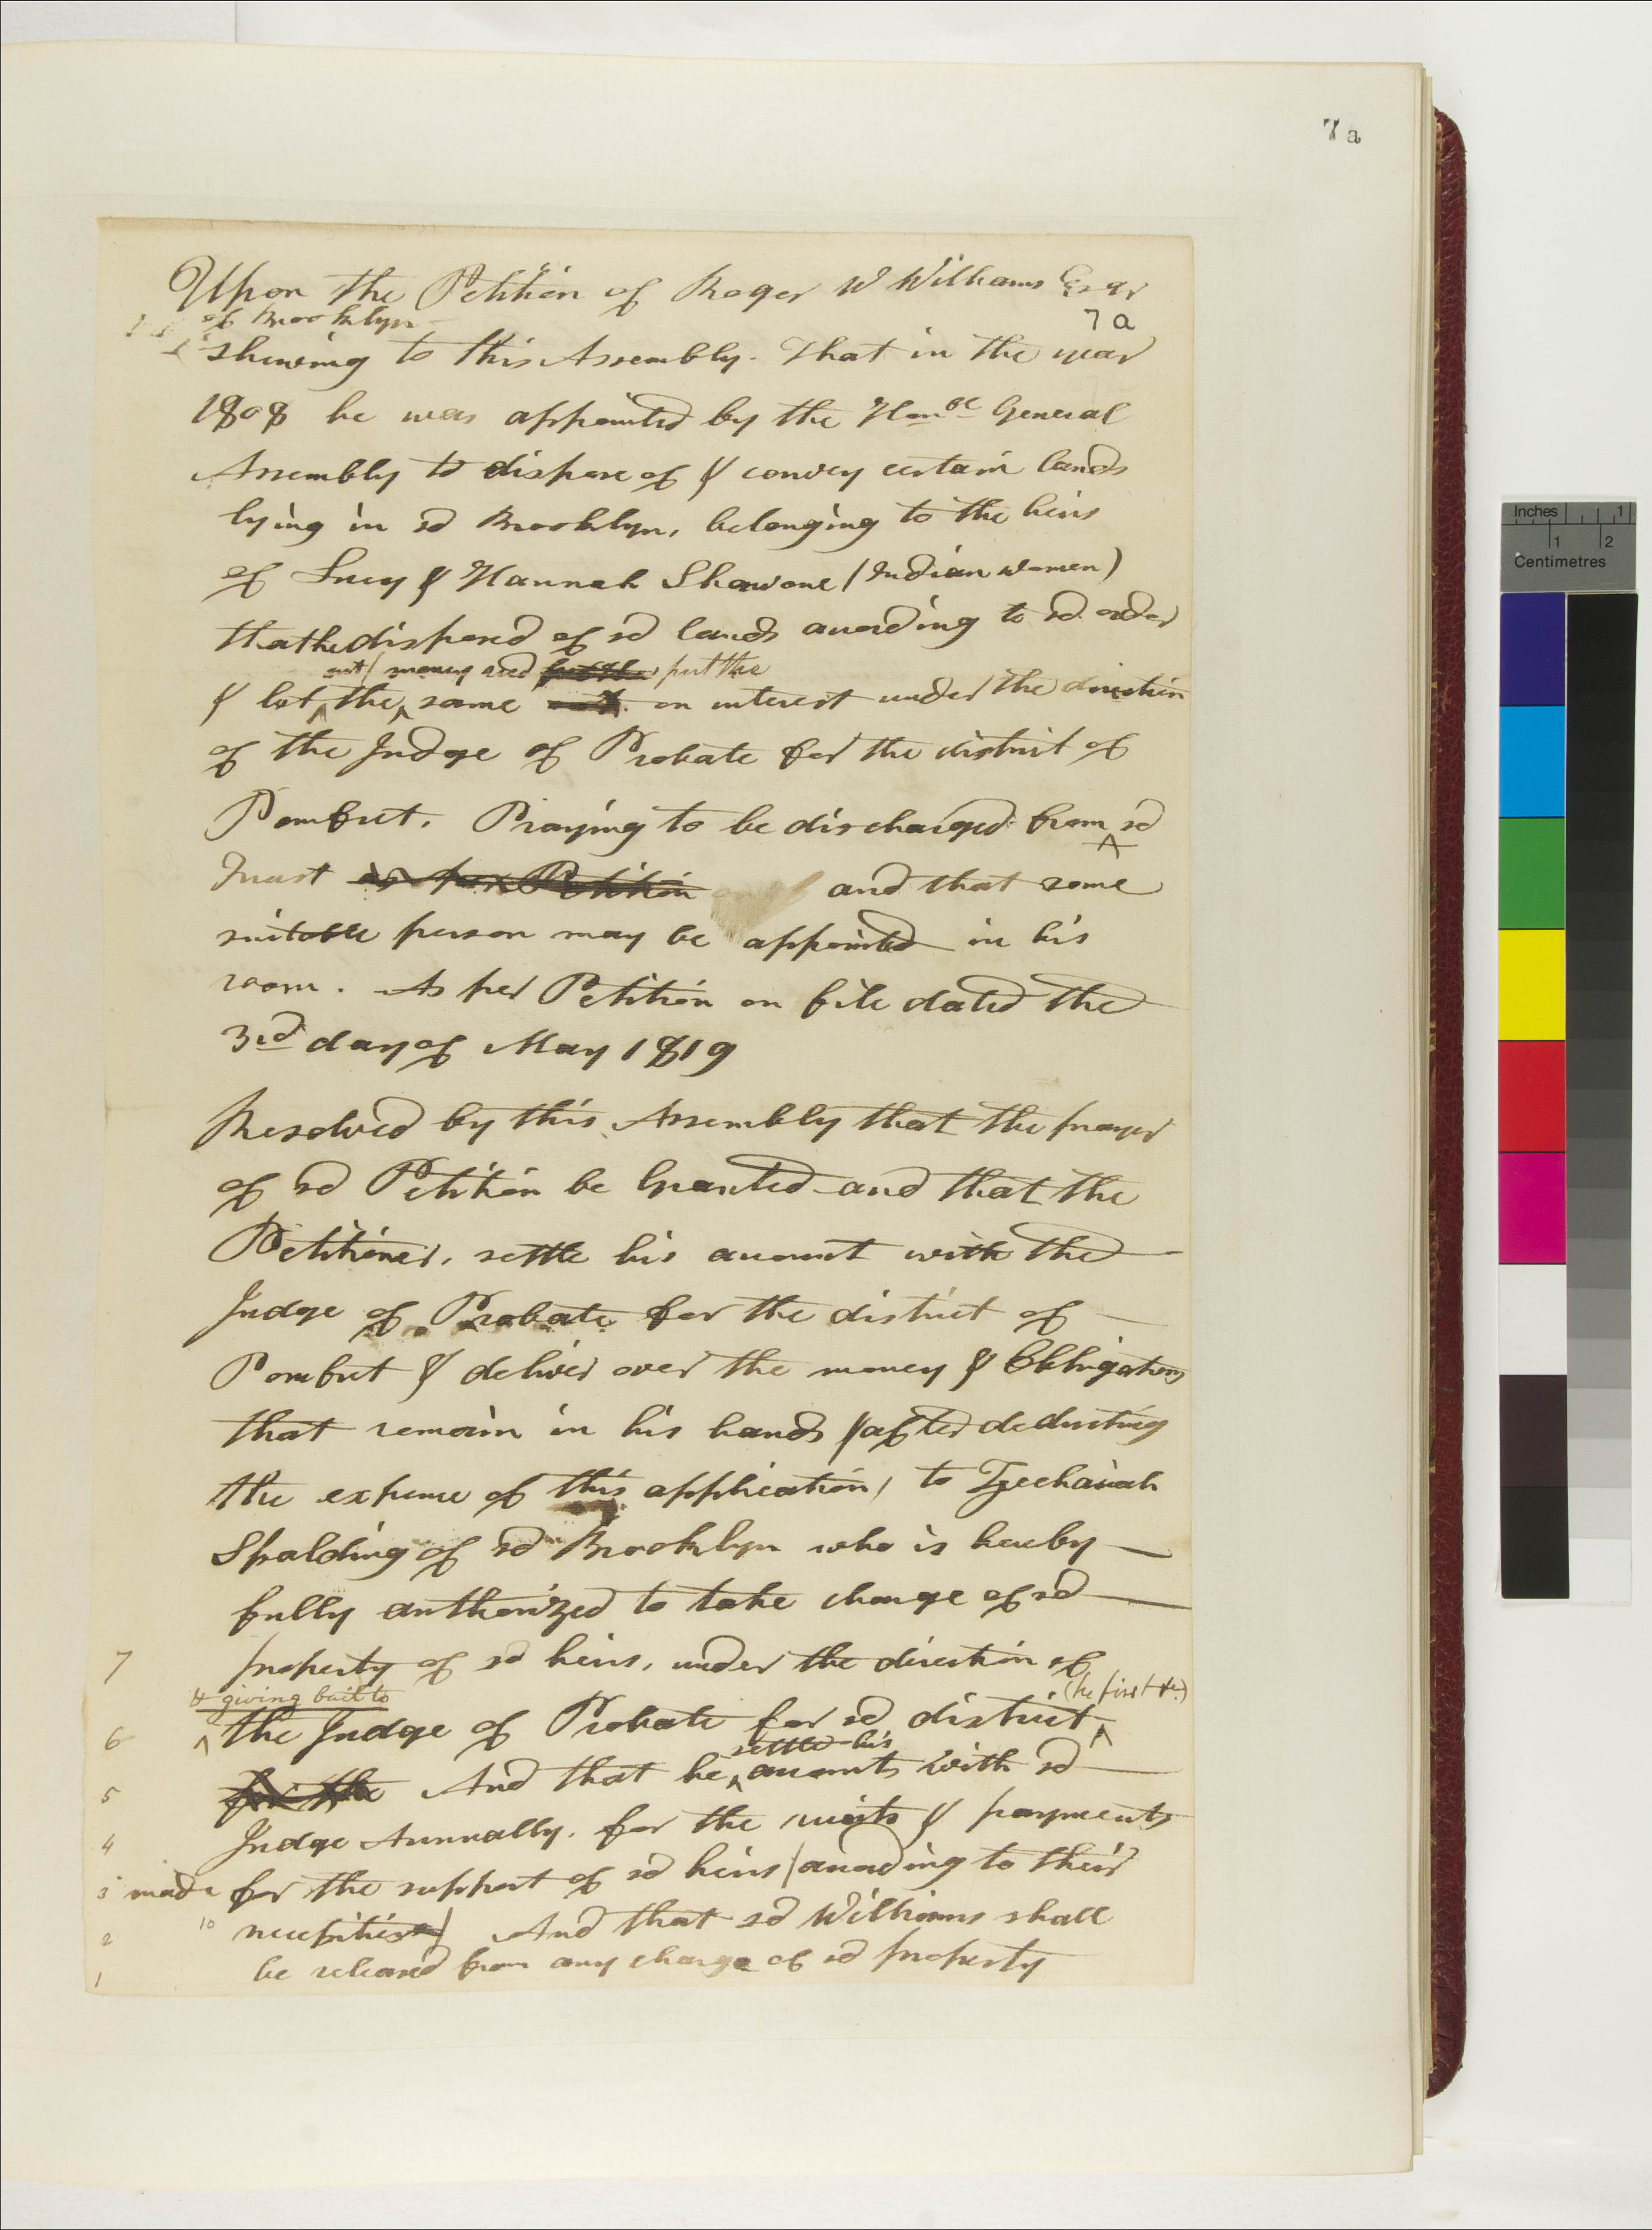 7a
Upon the Petition of Roger W Williams Esqr
7a
of Brooklyn
shewing to this Assembly. That in the year
1808 he was appointed by the Honble General
Assembly to dispose of & convey certain lands
lying in sd Brooklyn, belonging to the heirs
of Lucy & Hannah Shawone (Indian women)
that he disposed of sd lands according to sd order
out money recd put the
& let the same on interest under the direction
of the Judge of Probate for the district of
Pomfret. Praying to be discharged from sd
Trust as per Petition and that some
suitable person may be appointed in his
room. As per Petition on file dated the
3rd day of May 1819
Resolved by this Assembly that the prayer
of sd Petition be Granted and that the
Petitioner, settle his account with the
Judge of Probate for the district of
Pomfret & deliver over the money & Obligations
that remain in his hands (after deducting
the expense of this application) to Izechaiah
Spalding of sd Brooklyn who is hereby
fully authorized to take charge of sd
7 property of sd heirs, under the direction of
& giving bail to (he first &c)
6 the Judge of Probate for sd district
settle his
5 for the And that he accounts with sd
4 Judge Annually. for the receipts & payments
3 made for the support of sd heirs (according to their
2 10 necessities) And that sd Williams shall
1 be released from any charge of sd property
Inches 1
1 2
Centimetres